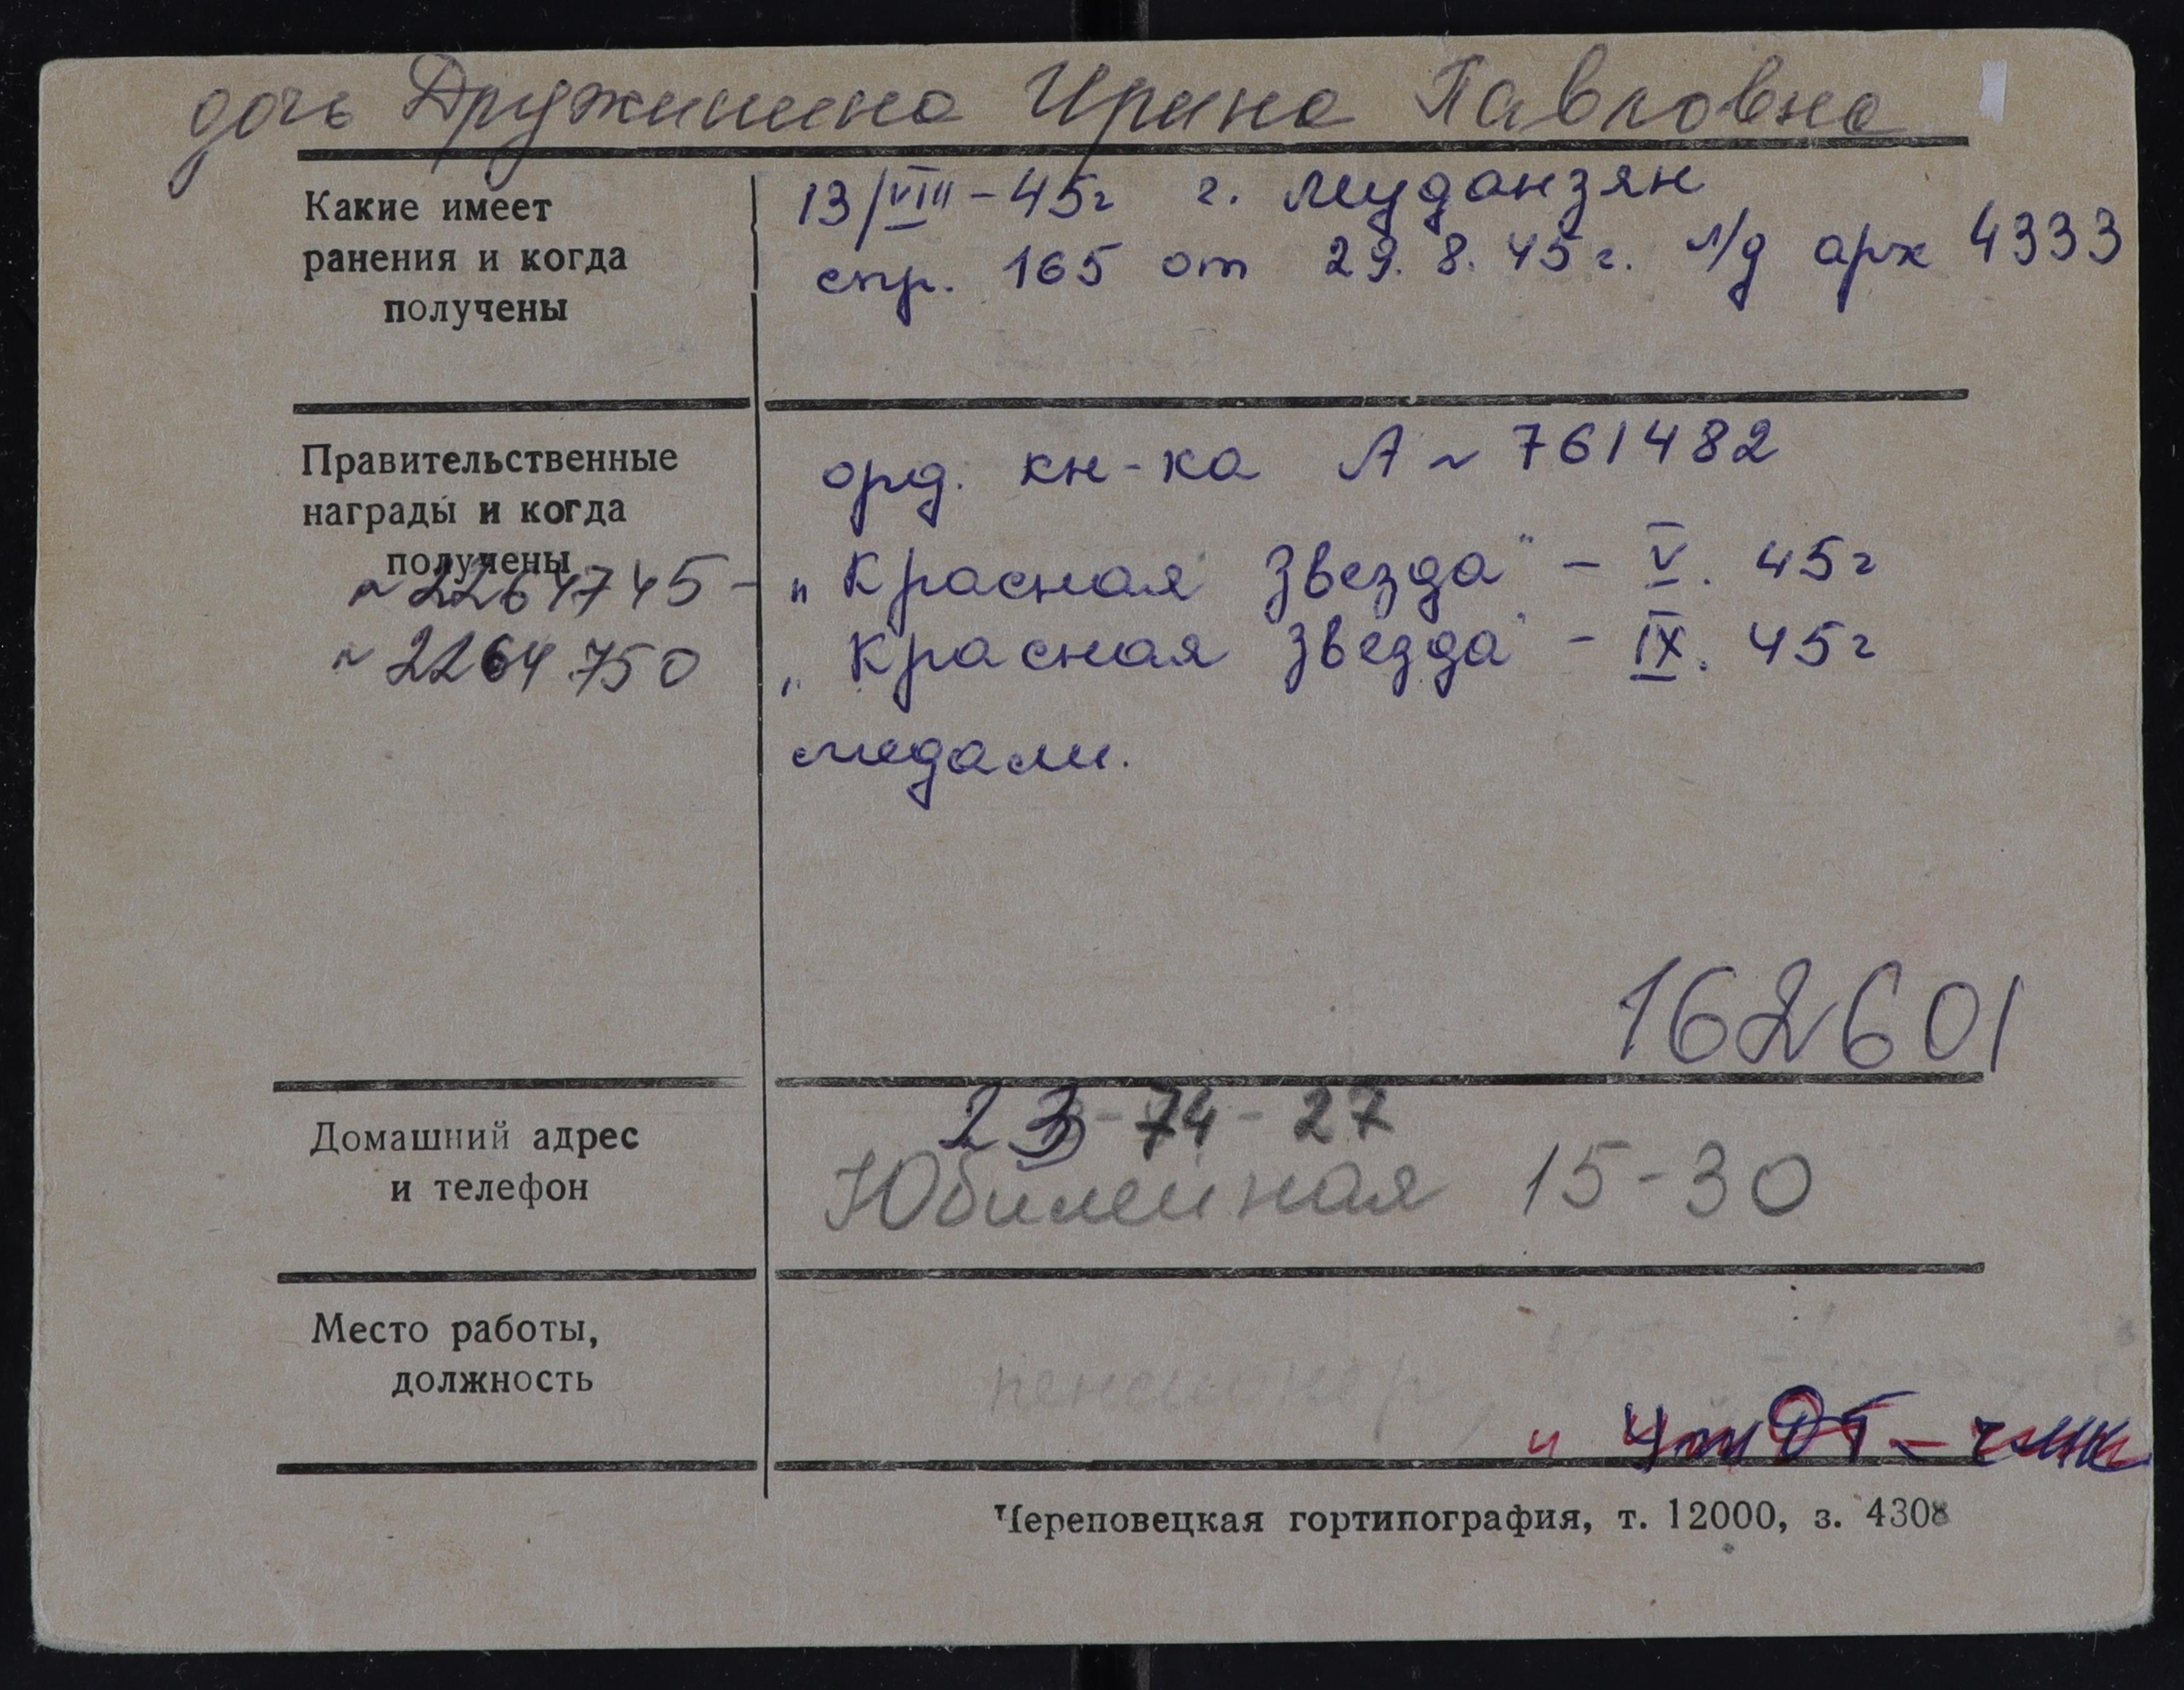 дочь Дружинина Ирина Павловна
Какие имеет
ранения и когда
получены
13/VIII – 45г г. Муданзян
спр. 165 от 29. 8. 45г. л/д арх 4333
Правительственные
награды и когда
получены
орд. кн-ка А ~ 761482
~ 2264745 – „Красная Звезда" – V. 45г
~ 2264750 „Красная Звезда" – IX. 45г
медали.
162601
Домашний адрес
и телефон
23-74-27
Юбилейная 15-30
Место работы,
должность
пенсионер,
Череповецкая гортипография, т. 12000, з. 4308